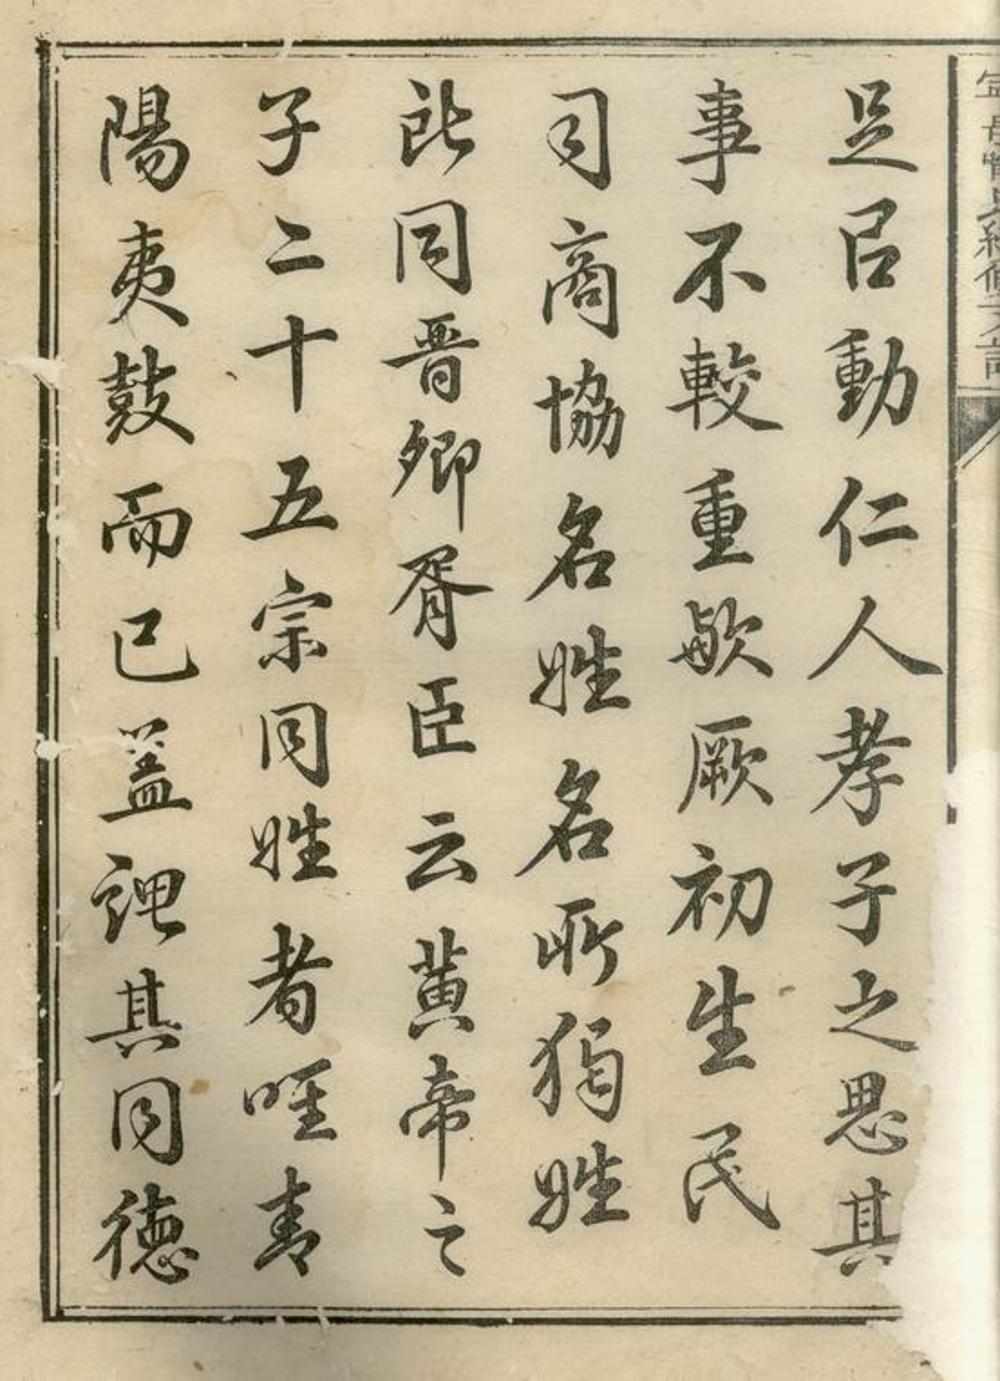 足㠯動仁人孝子之思其
事不較重歟厥初生民
司商協名姓名所猏姓
昉同晋卿胥臣云黄帝之
子二十五宗同姓者唯青
陽夷鼓而已盖謂其同德